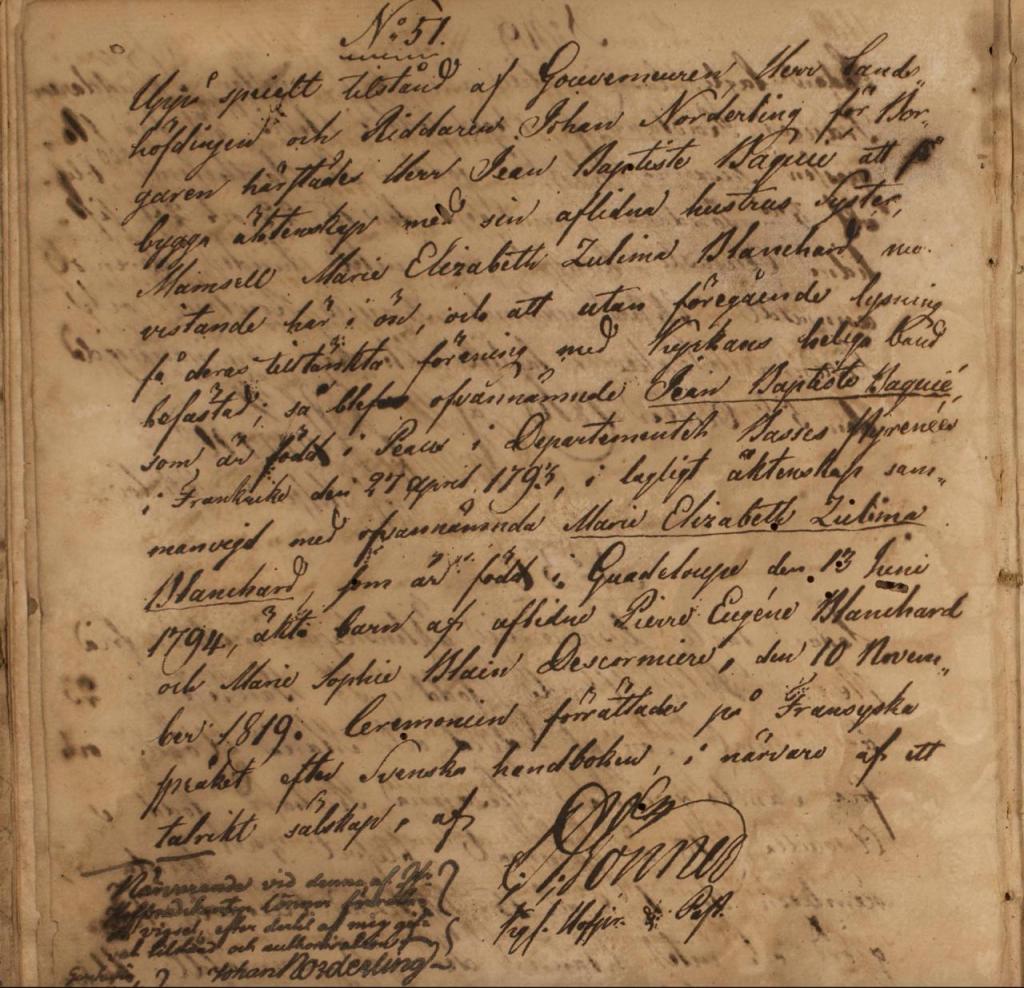 No 51.
Uppå speielt tilstånd af Gouverneuren, Herr Lands-
höfdingen och Riddaren Johan Norderling för Bor-
garen härstädes Herr Jean Baptiste Baquié att
bygga äktenskap med sin aflidna hustrus Syster,
Mamsell Marie Elizabeth Zulima Blanchard, nu
vistande här i ön, och att utan föregående lysning
få deras tiltänkta förening med Kyrkans heliga band
befästad; så blef ofvannämnde Jean Baptiste Baquié,
som är född i Peaux i Departementet Basses Pyrenées
i Frankrike den 27 April 1793, i lagligt äktenskap sam-
manvigd med ofvannämnda Marie Elizabeth Zulima
Blanchard, som är född i Guadeloupe den 13 Juni
1794, äkta barn af aflidne Pierre Eugéne Blanchard
och Marie Sophie Blain Descormiere, den 10 Novem-
ber 1819. Ceremonien förrättades på Fransyska
språket efter Svenska handboken, i närvaro af ett
talrikt sälskap, af
Närvarande vid denna af
vigsel, efter dertil af mig gif-
vet tilstånd och authorisation
Johan Norderling